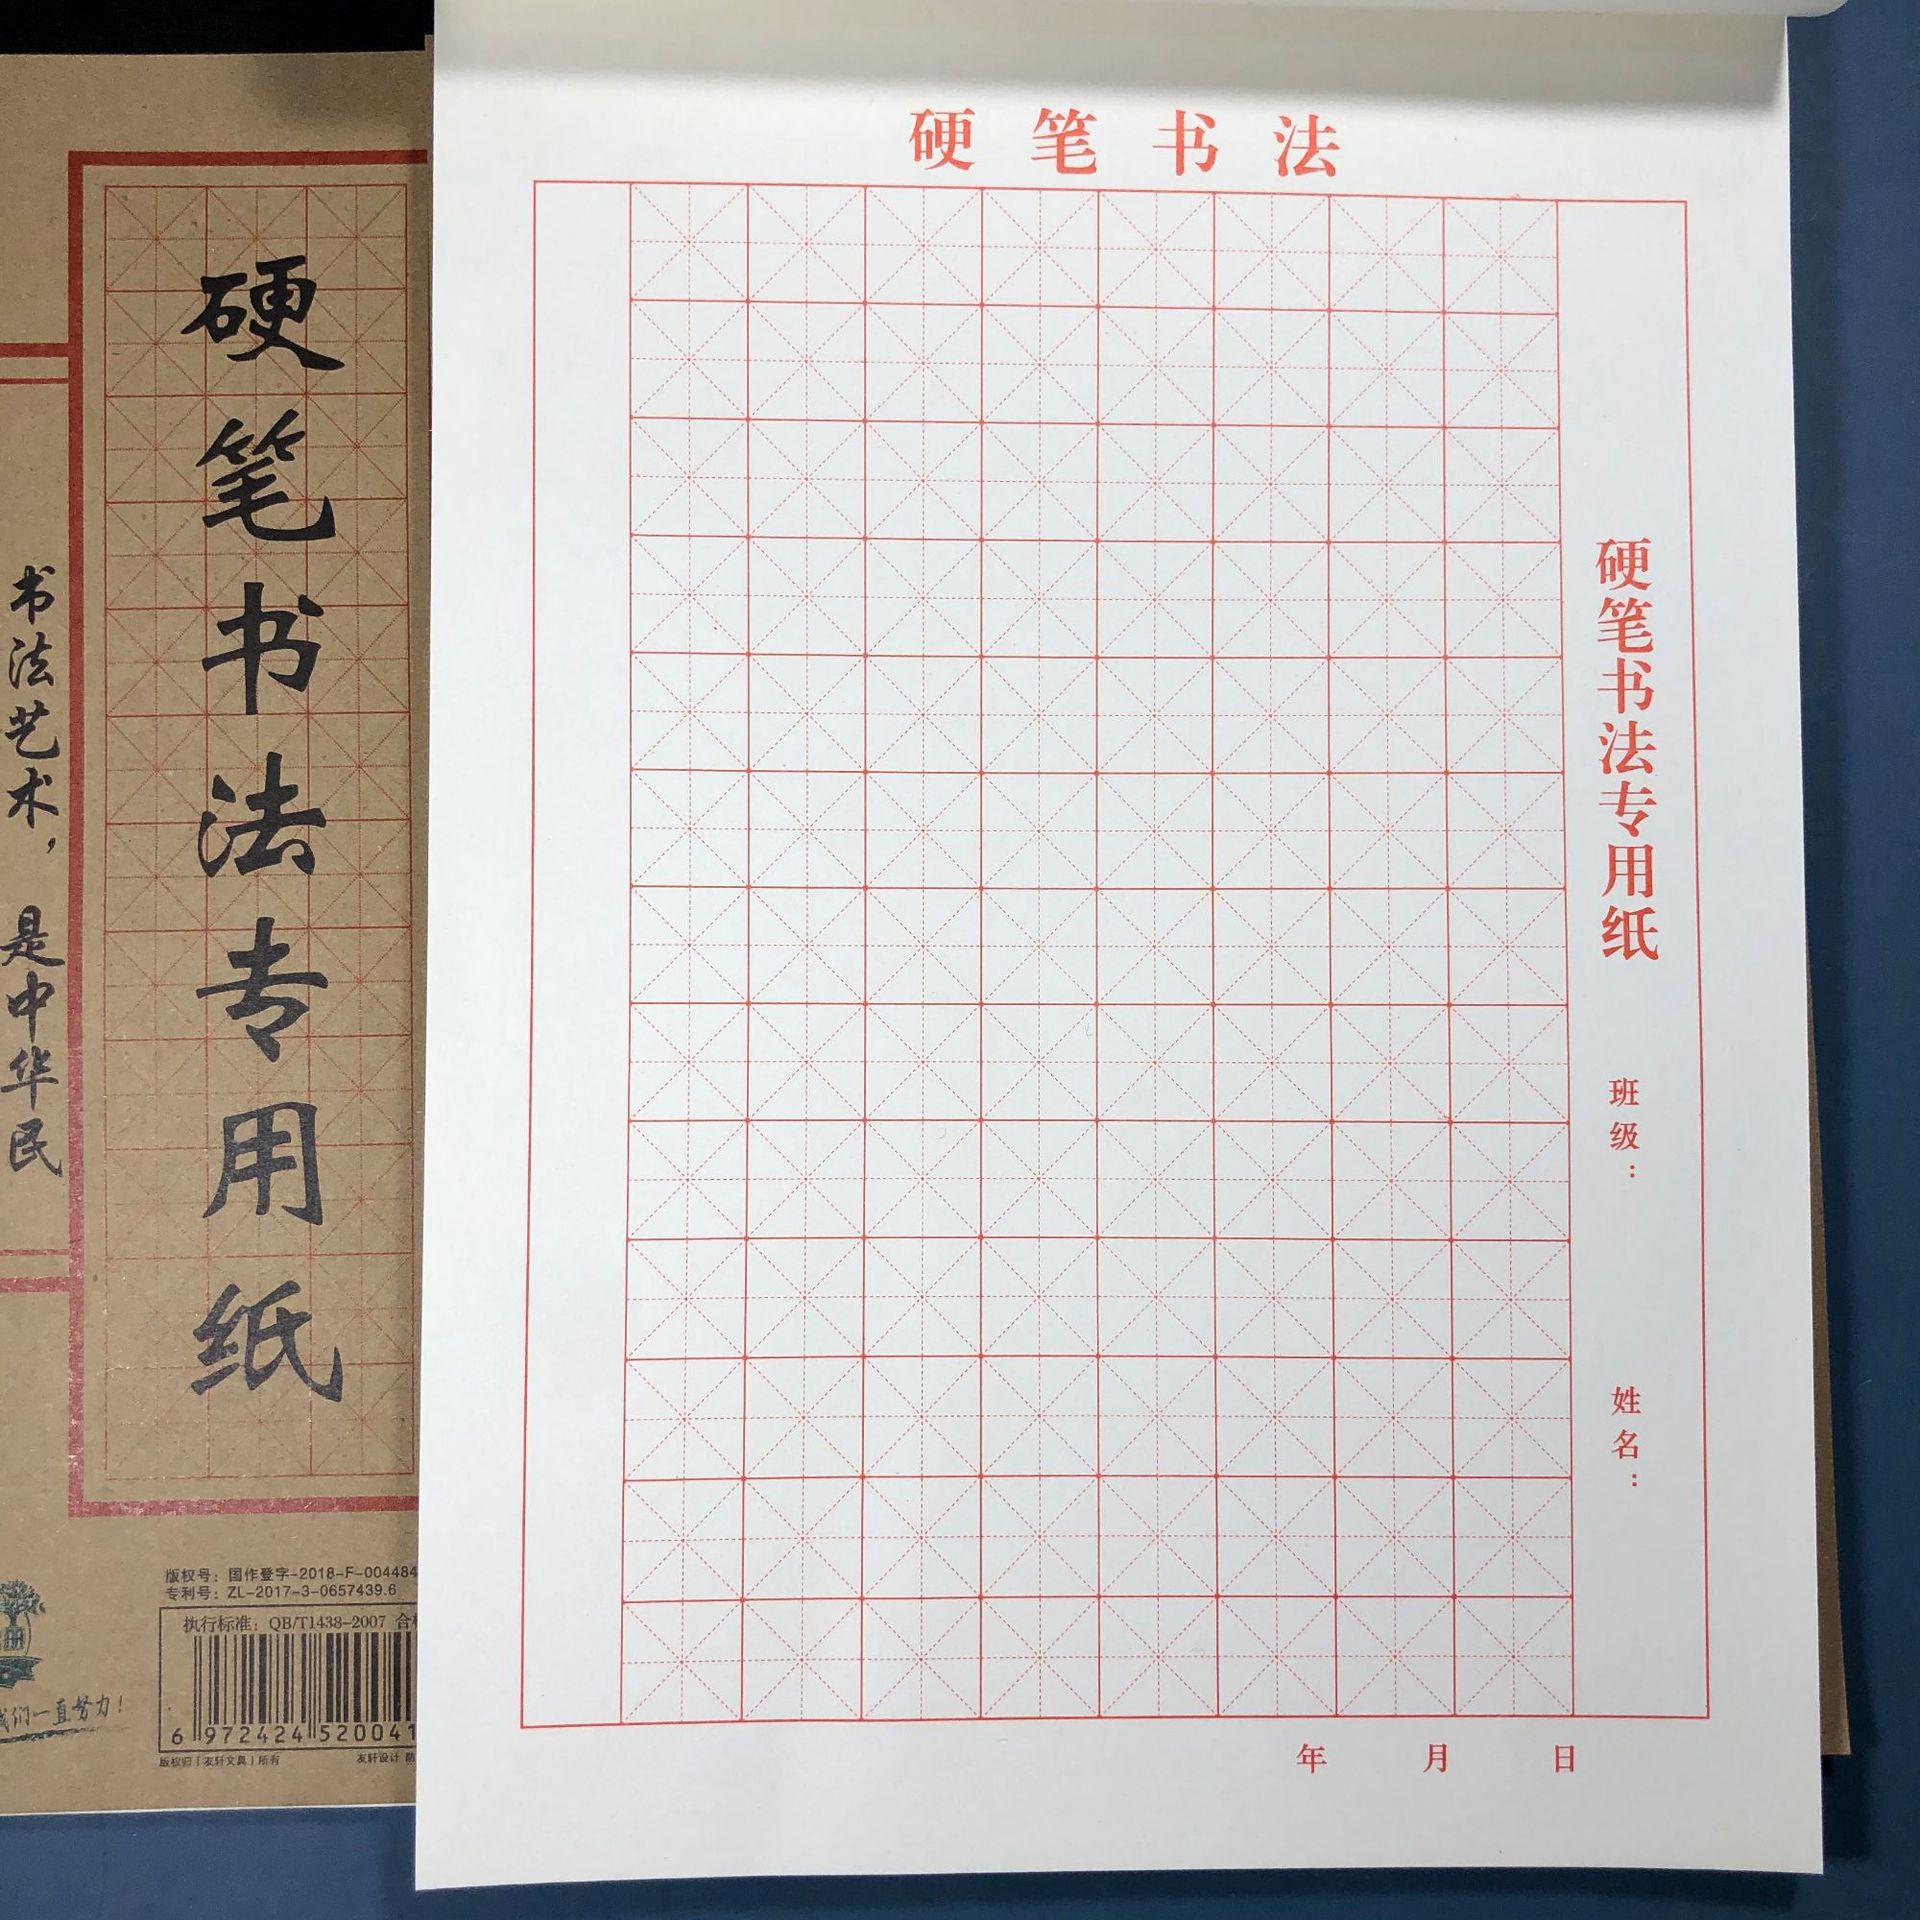 硬笔书法
硬笔书法专用纸
班级：
姓名：
年 月 日
硬笔书法专用纸
书法艺术，是中华民
版权号：国作登字-2018-F-004484
专利号：ZL-2017-3-0657439.6
执行标准：QB/T1438-2007 合
6 972424 520041
版权归｜友轩文具｜所有
友轩设计
们一直努力！